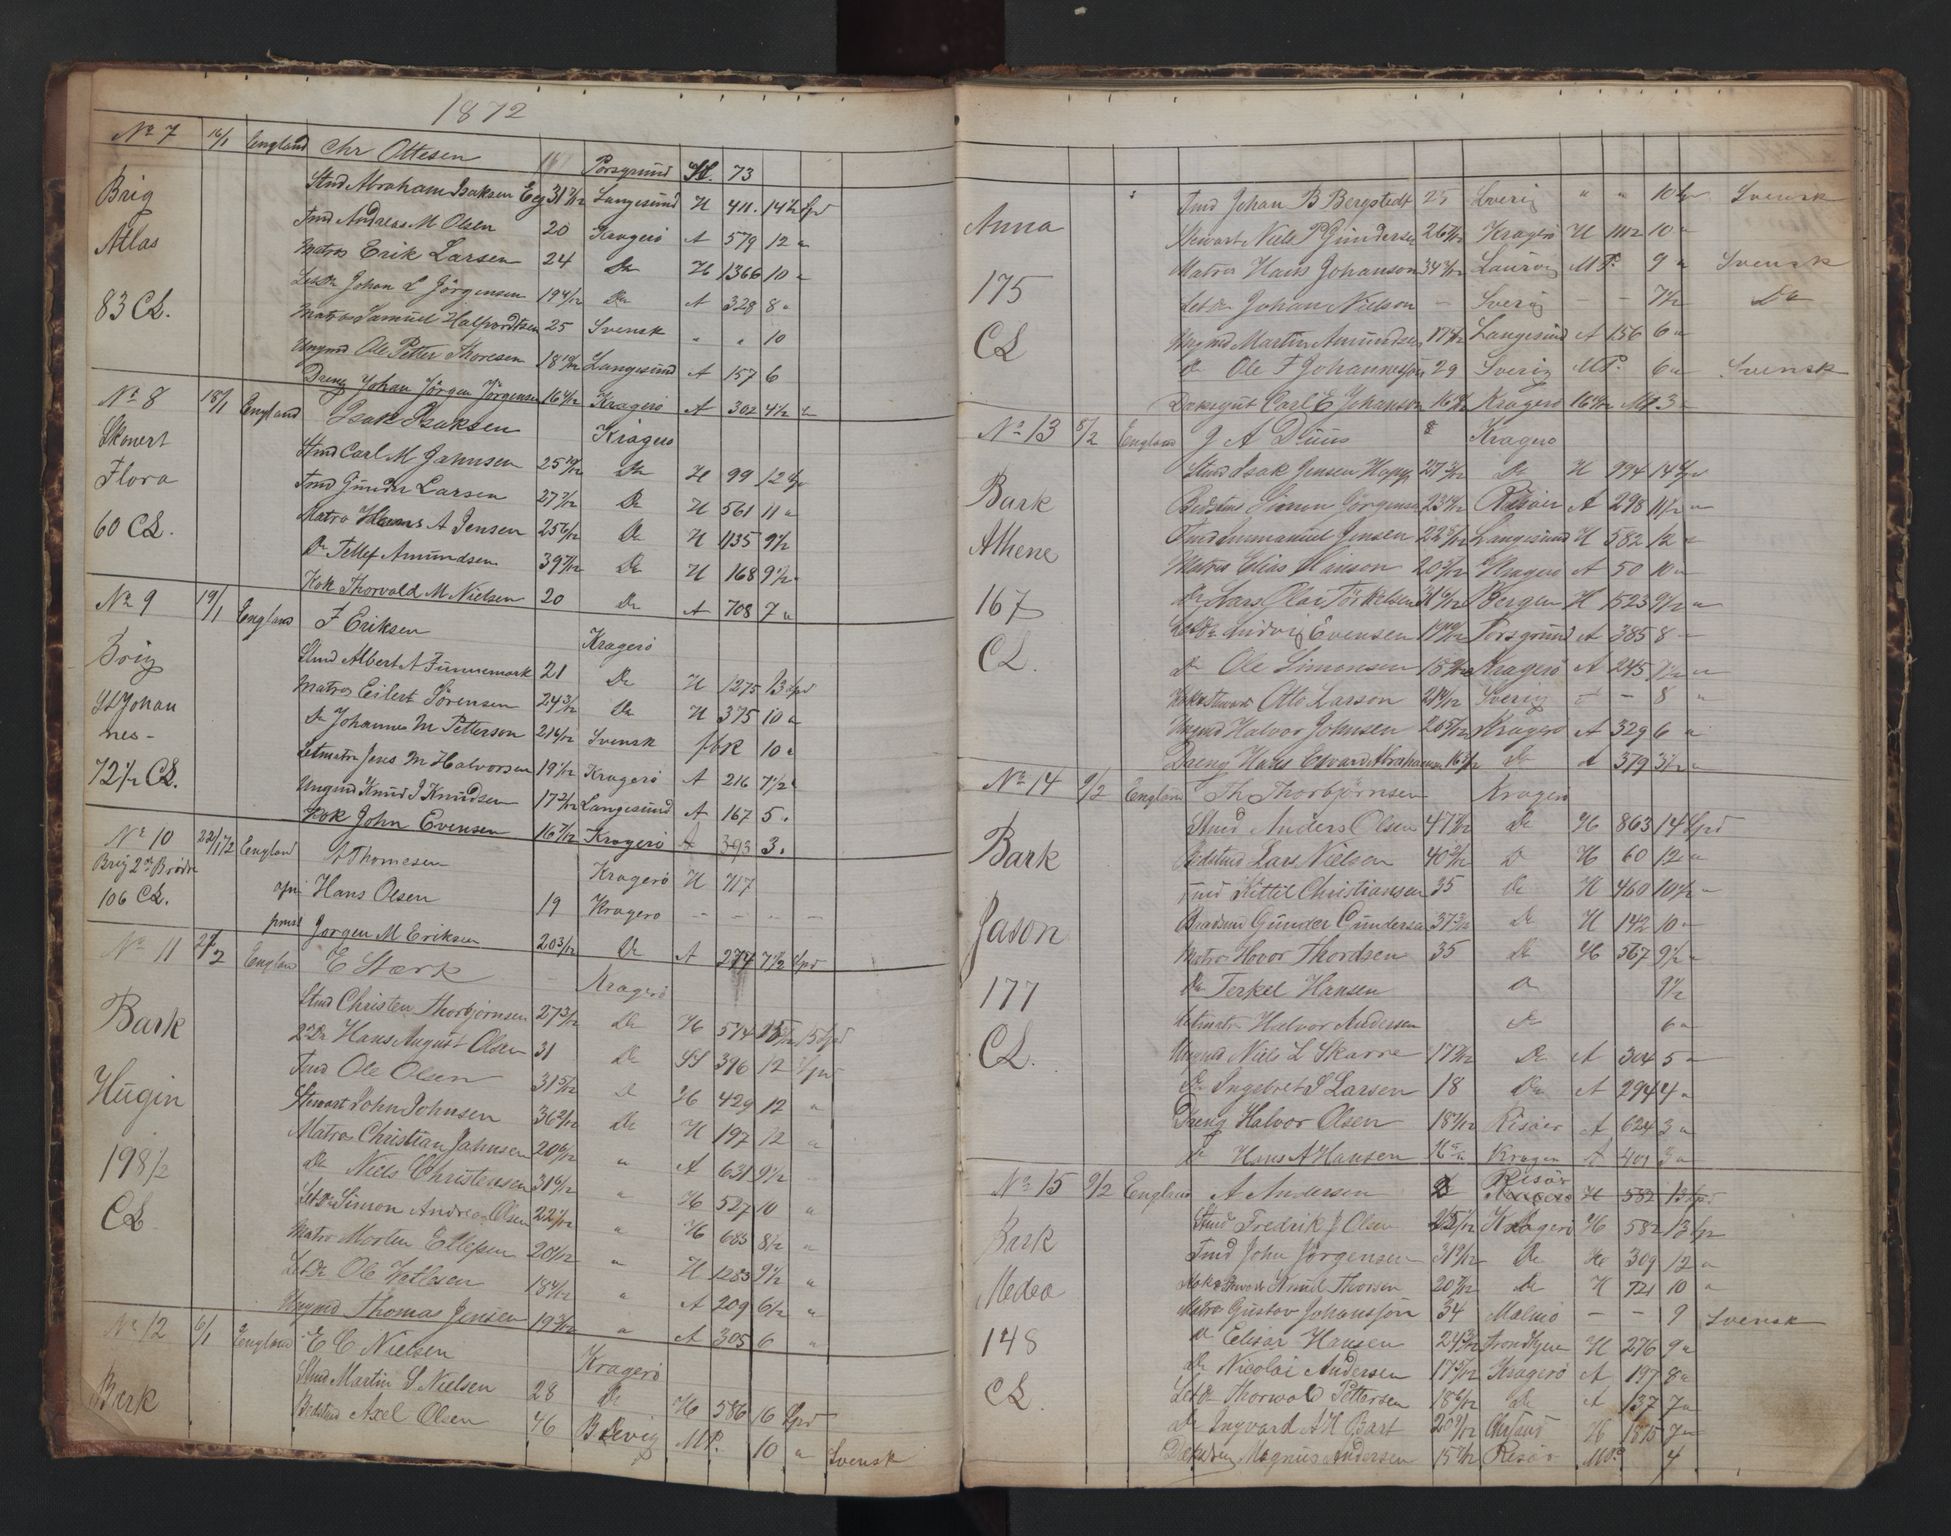 1872
No 7 16/1 England Chr Ottesen Porsgrund H. 73
Brig Stmd Abraham Isaksen 31 Langesund H 411. 14½ Spd
Tmd Andreas M Olsen 20 Kragerö A 579 12 "
Atlas Matros Erik Larsen 24 Do H 1366 10 "
Let Do Johan L Jörgensen 19 4/12 Do A 328 8 "
83 CL. Matros Samuel Halvordtsen 25 Svensk " " 10
Ungmd Ole Petter Thoresen 18 10/12 Langesund A 157 6
Dreng Johan Jörgen Jörgensen 16 4/12 Kragerö A 302 4½ "
No 8 18/1 England Isak Isaksen Kragerö
Skonert Stmd Carl M Jahnsen 25 Do H 99 12 Spd
Flora Tmd Gunder Larsen 27 7/12 Do H 561 11 "
60 CL. Matro Hans A Jensen 25 6/12 Do H 1135 9½
Do Tellef Amundsen 39 Do H 168 9½ "
Kok Thorvald M Nielsen 20 Do A 708 7 "
No 9 19/1 England F Eriksen Kragerö
Brig Stmd Albert A Finnemark 21 Do H 1275 13 Spd
Matros Eilert Sörensen 24 3/12 Do H 375 10 "
St Johan Do Johannes M Petterson 21 6/12 Svensk 10 "
nes - Letmatro Jens M Halvorsen 19 1/12 Kragerö A 216 7½ "
72½ CL. Ungmd Knud I Knudsen 17 2/12 Langesund A 167 5 "
Kok John Evensen 16 7/12 Kragerö A 393 3 "
No 10 22/1 72 England A Thomesen Kragerö H 717
Brig 2de Brödre
106 CL. Hans Olsen 19 Kragerö - - - -
Jörgen M Eriksen 20 3/12 Do A 274 7½ Spd
No 11 England E Stærk Kragerö
Stmd Christen Thorbjörnsen 27 3/12 Do H 574 15 Spd
Bark 2 Do Hans August Olsen 31 Do H 396 12 Spd
Tmd Ole Olsen 31 5/12 Do H 429 12 "
Hugin Stewart John Johnsen 36 2/12 Do H 197 12 "
Matro Christian Jahnsen 20 6/12 " A 631 9½ "
198½ Do Niels Christensen 31 6/12 " H 527 10 "
CL Let Do Simon Andrea Olsen 22 1/12 " H 683 8½ "
Matro Morten Ellefsen 20 1/12 " H 1283 9½ "
Let Do Ole 18 4/12 " A 209 6½ "
Ungmd Thomas Jensen 19 3/12 " A 305 6 "
No 12 6/1 England E C Nielsen Kragerö
Bark Stmd Martin S Nielsen 28 Do H 586 16 Spd
Bedstmd Axel Olsen 46 Brevig MP. 10 " Svensk
Tmd Johan B Bergstedt 25 Sverig " " 10 Svensk
Anna Stewart Niels P Gundersen 26 Kragerö H 1102 10 "
Matros Hans Johanson 34 Laurvig MP. 9 " Svensk
175 Let Do Johan Nielson - Sverig - - 7½ Do
CL Ungmd Martin Amundsen 17 Langesund A 156 6 "
Do Ole F Johannesson 29 Sverig MP. 6 " Svensk
Dæksgut Carl E Johanson 16 Kragerö MP 3 "
No 13 8/2 England J A Duus Kragerö
Stmd Isak Jensen 27 3/12 Do H 994 14 Spd
Bark Bedstmd Simon Jörgensen 23 Risöer A 298 11½ "
Athene Tmd Immanuel Jensen 22 5/12 Langesund H 582 12 "
Matros Elias Hanson 20 7/12 Kragerö A 50 10 "
167 Do Lars Olai Törkelsen 21 Bergen H 1523 9½ "
Let Do Ludvig Evensen 19 Porsgrund A 385 8 "
CL. Do Ole Simonsen 18 Kragerö A 245 7½ "
Kok & Stewart Otto Larson 24 Sverig - - 8 "
Ungmd Halvor Johnsen 20 5/12 Kragerö A 329 6 "
Dreng Hans Edvard Abrahamsen 16 Do A 379 3½ "
No 14 9/2 England Th Thorbjörnsen Kragerö
Stmd Anders Olsen 47 Do H 863 14 Spd
Bark Bedstmd Lars Nielson 40 Do H 60 12 "
Tmd Kittil Christiansen 35 Do H 460 10½ "
Gunder Gundersen 37 3/12 Do H 142 10 "
Jason Matro Hovor Thordsen 35 Do H 567 9½ "
177 Do Terkel Hansen Do 9½
Letmatro Halvor Andersen Do 6 "
CL. Ungmd Niels L Skarre 17 Do A 304 5 "
Do Ingebret S Larsen 18 Do A 294 4 "
Dreng Halvor Olsen 18 Risöer A 624 3 "
Do Hans A Hansen 16 Kragerö A 401 3 "
No 15 9/2 England A Andersen Risör H 582 13 Spd
Bark Stmd Fredrik J Olsen 25 Kragerö H 582 13 Spd
Tmd John Jörgensen 31 Do H 309 12 "
Medea Knud Thorsen 20 Do H 721 10 "
Matro Gustav Johansson 34 Malmö - - 9 Svensk
148 Do Elisar Hansen 24 3/12 Trondhjem H 276 9 "
Do Nicolai Andersen 17 5/12 Kragerö A 197 8 "
CL. Let Do Thorwald Pettersen 18 Do A 137 7 "
Do Ingvard A H Bart 20 H 1875 7 "
Magnus Andersen 15 Risör MP. 4